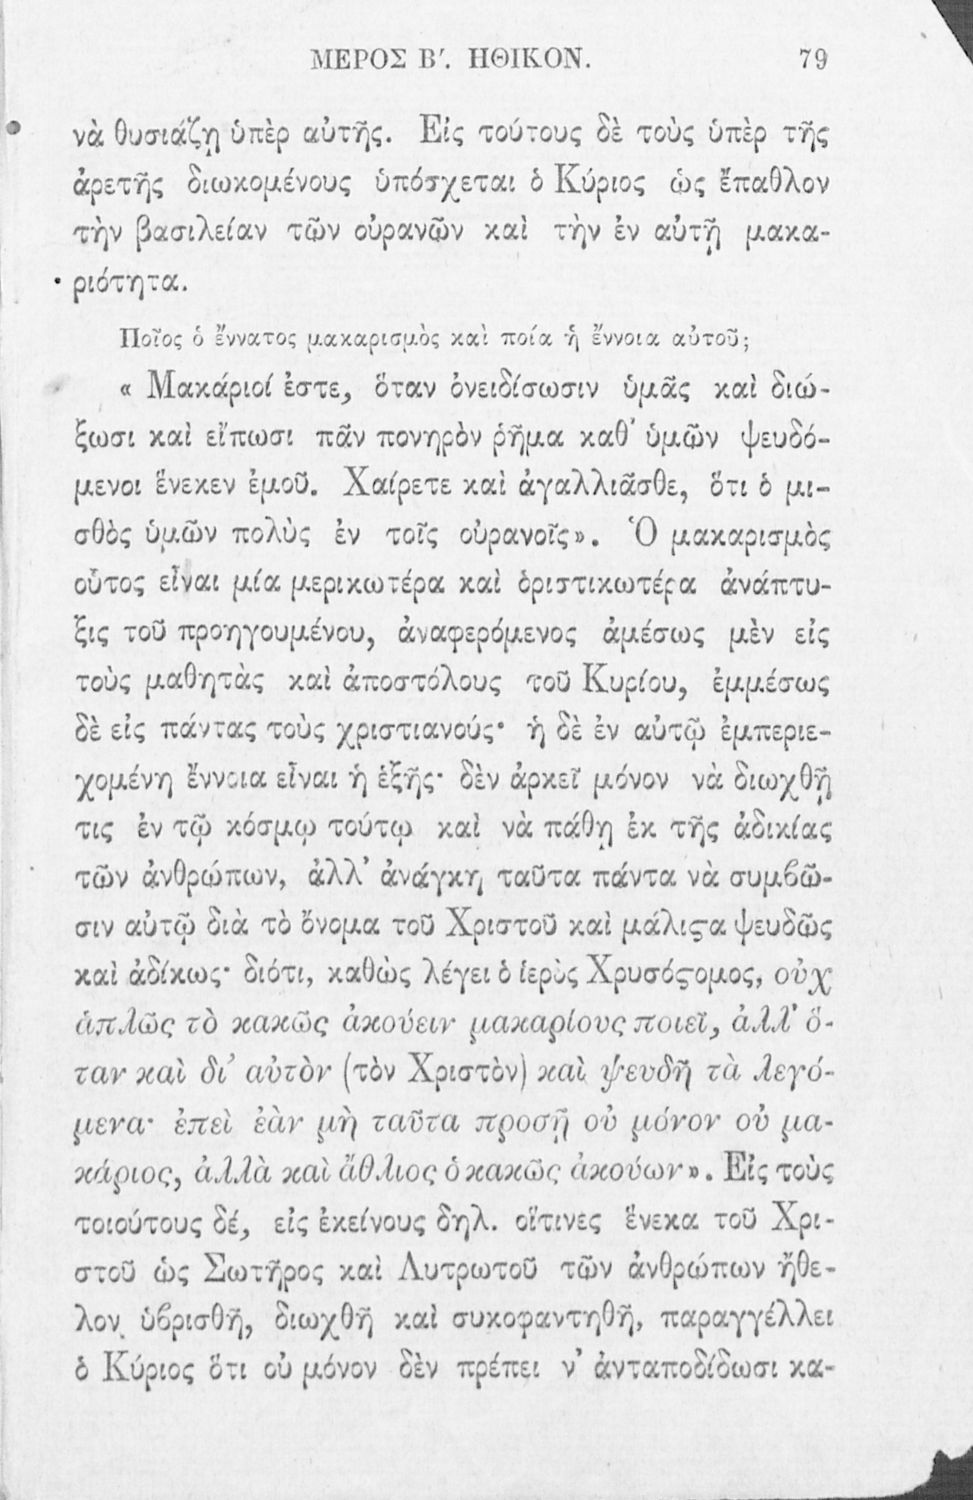 ΜΕΡΟΣ Βʹ. ΗΘΙΚΟΝ. 79
νὰ θυσιάζῃ ὑπὲρ αὐτῆς. Εἰς τούτους δὲ τοὺς ὑπὲρ τῆς
ἀρετῆς διωκομένους ὑπόσχεται ὁ Κύριος ὡς ἔπαθλον
τὴν βασιλείαν τῶν οὐρανῶν καὶ τὴν ἐν αὐτῇ μακα-
ριότητα.
Ποῖος ὁ ἔννατος μακαρισμὸς καὶ ποία ἡ ἔννοια αὐτοῦ;
« Μακάριοί ἐστε, ὅταν ὀνειδίσωσιν ὑμᾶς καὶ διώ-
ξωσι καὶ εἴπωσι πᾶν πονηρὸν ῥῆμα καθ᾽ ὑμῶν ψευδό-
μενοι ἕνεκεν ἐμοῦ. Χαίρετε καὶ ἀγαλλιᾶσθε, ὅτι ὁ μι-
σθὸς ὑμῶν πολὺς ἐν τοῖς οὐρανοῖς». Ὁ μακαρισμὸς
οὗτος εἶναι μία μερικωτέρα καὶ ὁριστικωτέρα ἀνάπτυ-
ξις τοῦ προηγουμένου, ἀναφερόμενος ἀμέσως μὲν εἰς
τοὺς μαθητὰς καὶ ἀποστόλους τοῦ Κυρίου, ἐμμέσως
δὲ εἰς πάντας τοὺς χριστιανούς· ἡ δὲ ἐν αὐτῷ ἐμπεριε-
χομένη ἔννοια εἶναι ἡ ἑξῆς· δὲν ἀρκεῖ μόνον νὰ διωχθῇ
τις ἐν τῷ κόσμῳ τούτῳ καὶ νὰ πάθῃ ἐκ τῆς ἀδικίας
τῶν ἀνθρώπων, ἀλλ᾽ ἀνάγκη ταῦτα πάντα νὰ συμϐῶ-
σιν αὐτῷ διὰ τὸ ὄνομα τοῦ Χριστοῦ καὶ μάλιϛα ψευδῶς
καὶ ἀδίκως· διότι, καθὼς λέγει ὁ ἱερὸς Χρυσόϛομος, οὐχ
ἁπλῶς τὸ κακῶς ἀκούειν μακαρίους ποιεῖ, ἀλλ᾽ ὅ-
ταν καὶ δι᾽ αὐτὸν (τὸν Χριστὸν) καὶ ψευδῆ τὰ λεγό-
μενα· ἐπεὶ ἐὰν μὴ ταῦτα προσῇ οὐ μόνον οὐ μα-
κάριος, ἀλλὰ καὶ ἄθλιος ὁ κακῶς ἀκούων». Εἰς τοὺς
τοιούτους δέ, εἰς ἐκείνους δηλ. οἵτινες ἕνεκα τοῦ Χρι-
στοῦ ὡς Σωτῆρος καὶ Λυτρωτοῦ τῶν ἀνθρώπων ἤθε-
λον ὑϐρισθῆ, διωχθῆ καὶ συκοφαντηθῆ, παραγγέλλει
ὁ Κύριος ὅτι οὐ μόνον δὲν πρέπει ν᾽ ἀνταποδίδωσι κα-